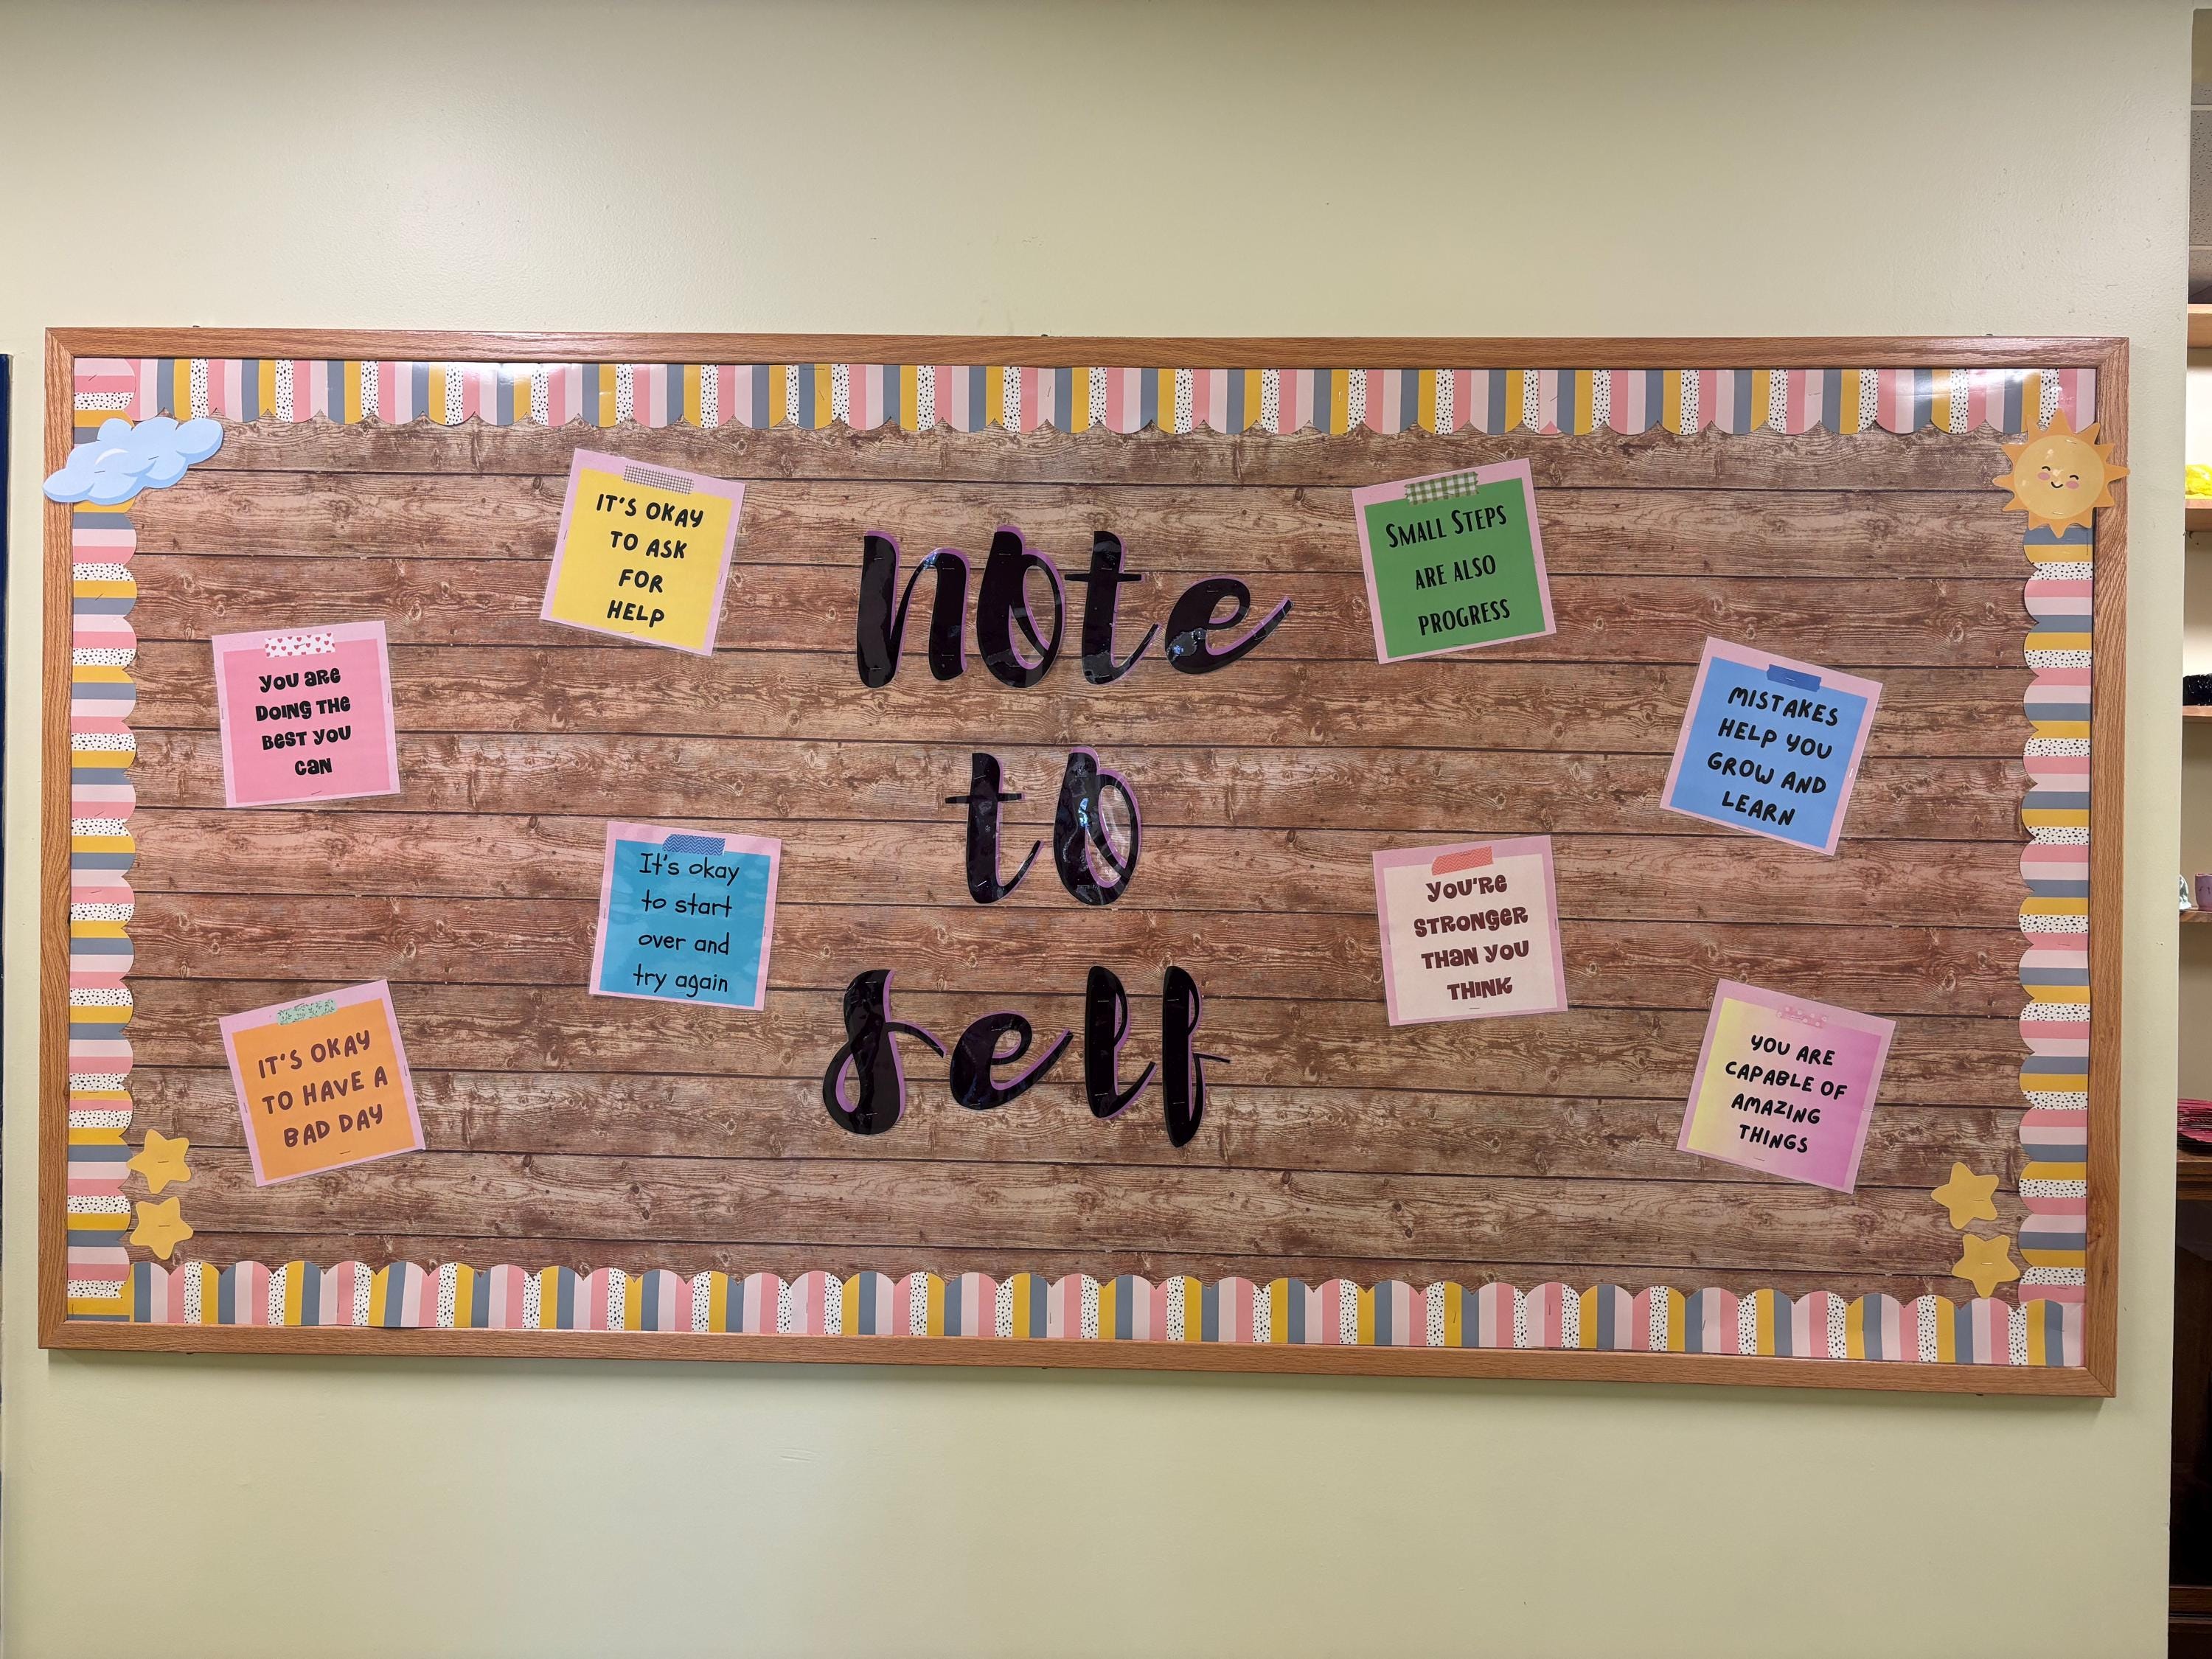 note
to
self
YOU ARE
DOING THE
BEST YOU
CAN
IT'S OKAY
TO ASK
FOR
HELP
It's okay
to start
over and
try again
IT'S OKAY
TO HAVE A
BAD DAY
SMALL STEPS
ARE ALSO
PROGRESS
MISTAKES
HELP YOU
GROW AND
LEARN
YOU'RE
STRONGER
THAN YOU
THINK
YOU ARE
CAPABLE OF
AMAZING
THINGS